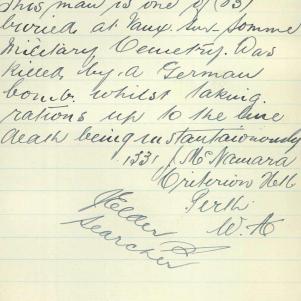 This man is one of (3)
buried at Vaux-sur-Somme
Military Cemetry. Was
killed by a German
bomb whilst taking
rations up to the line
death being instantaionously
1331 J. McNamara
Criterion Hotl
Perth
W. A
Searcher